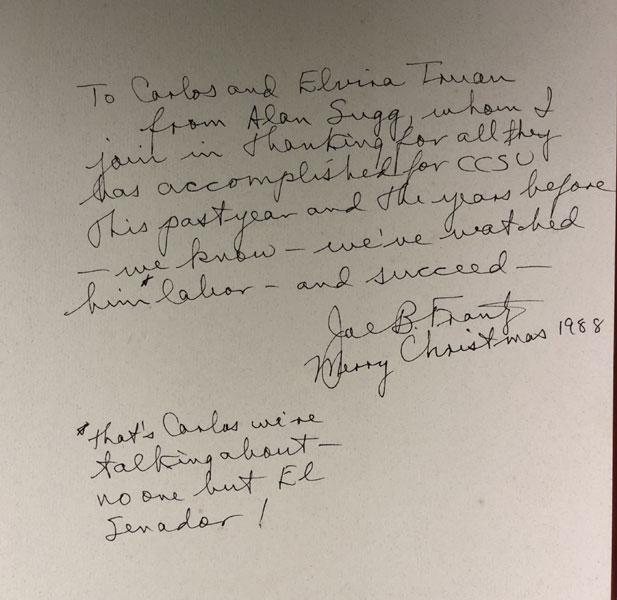 To Carlos and Elvira Truan
from Alan Sugg, whom I
join in thanking for all they
has accomplished for CCSU
this past year and the years before
— we know — we've watched
him* labor — and succeed —
Joe B. Frantz
Merry Christmas 1988
*that's Carlos we're
talking about —
no one but El
Senador!